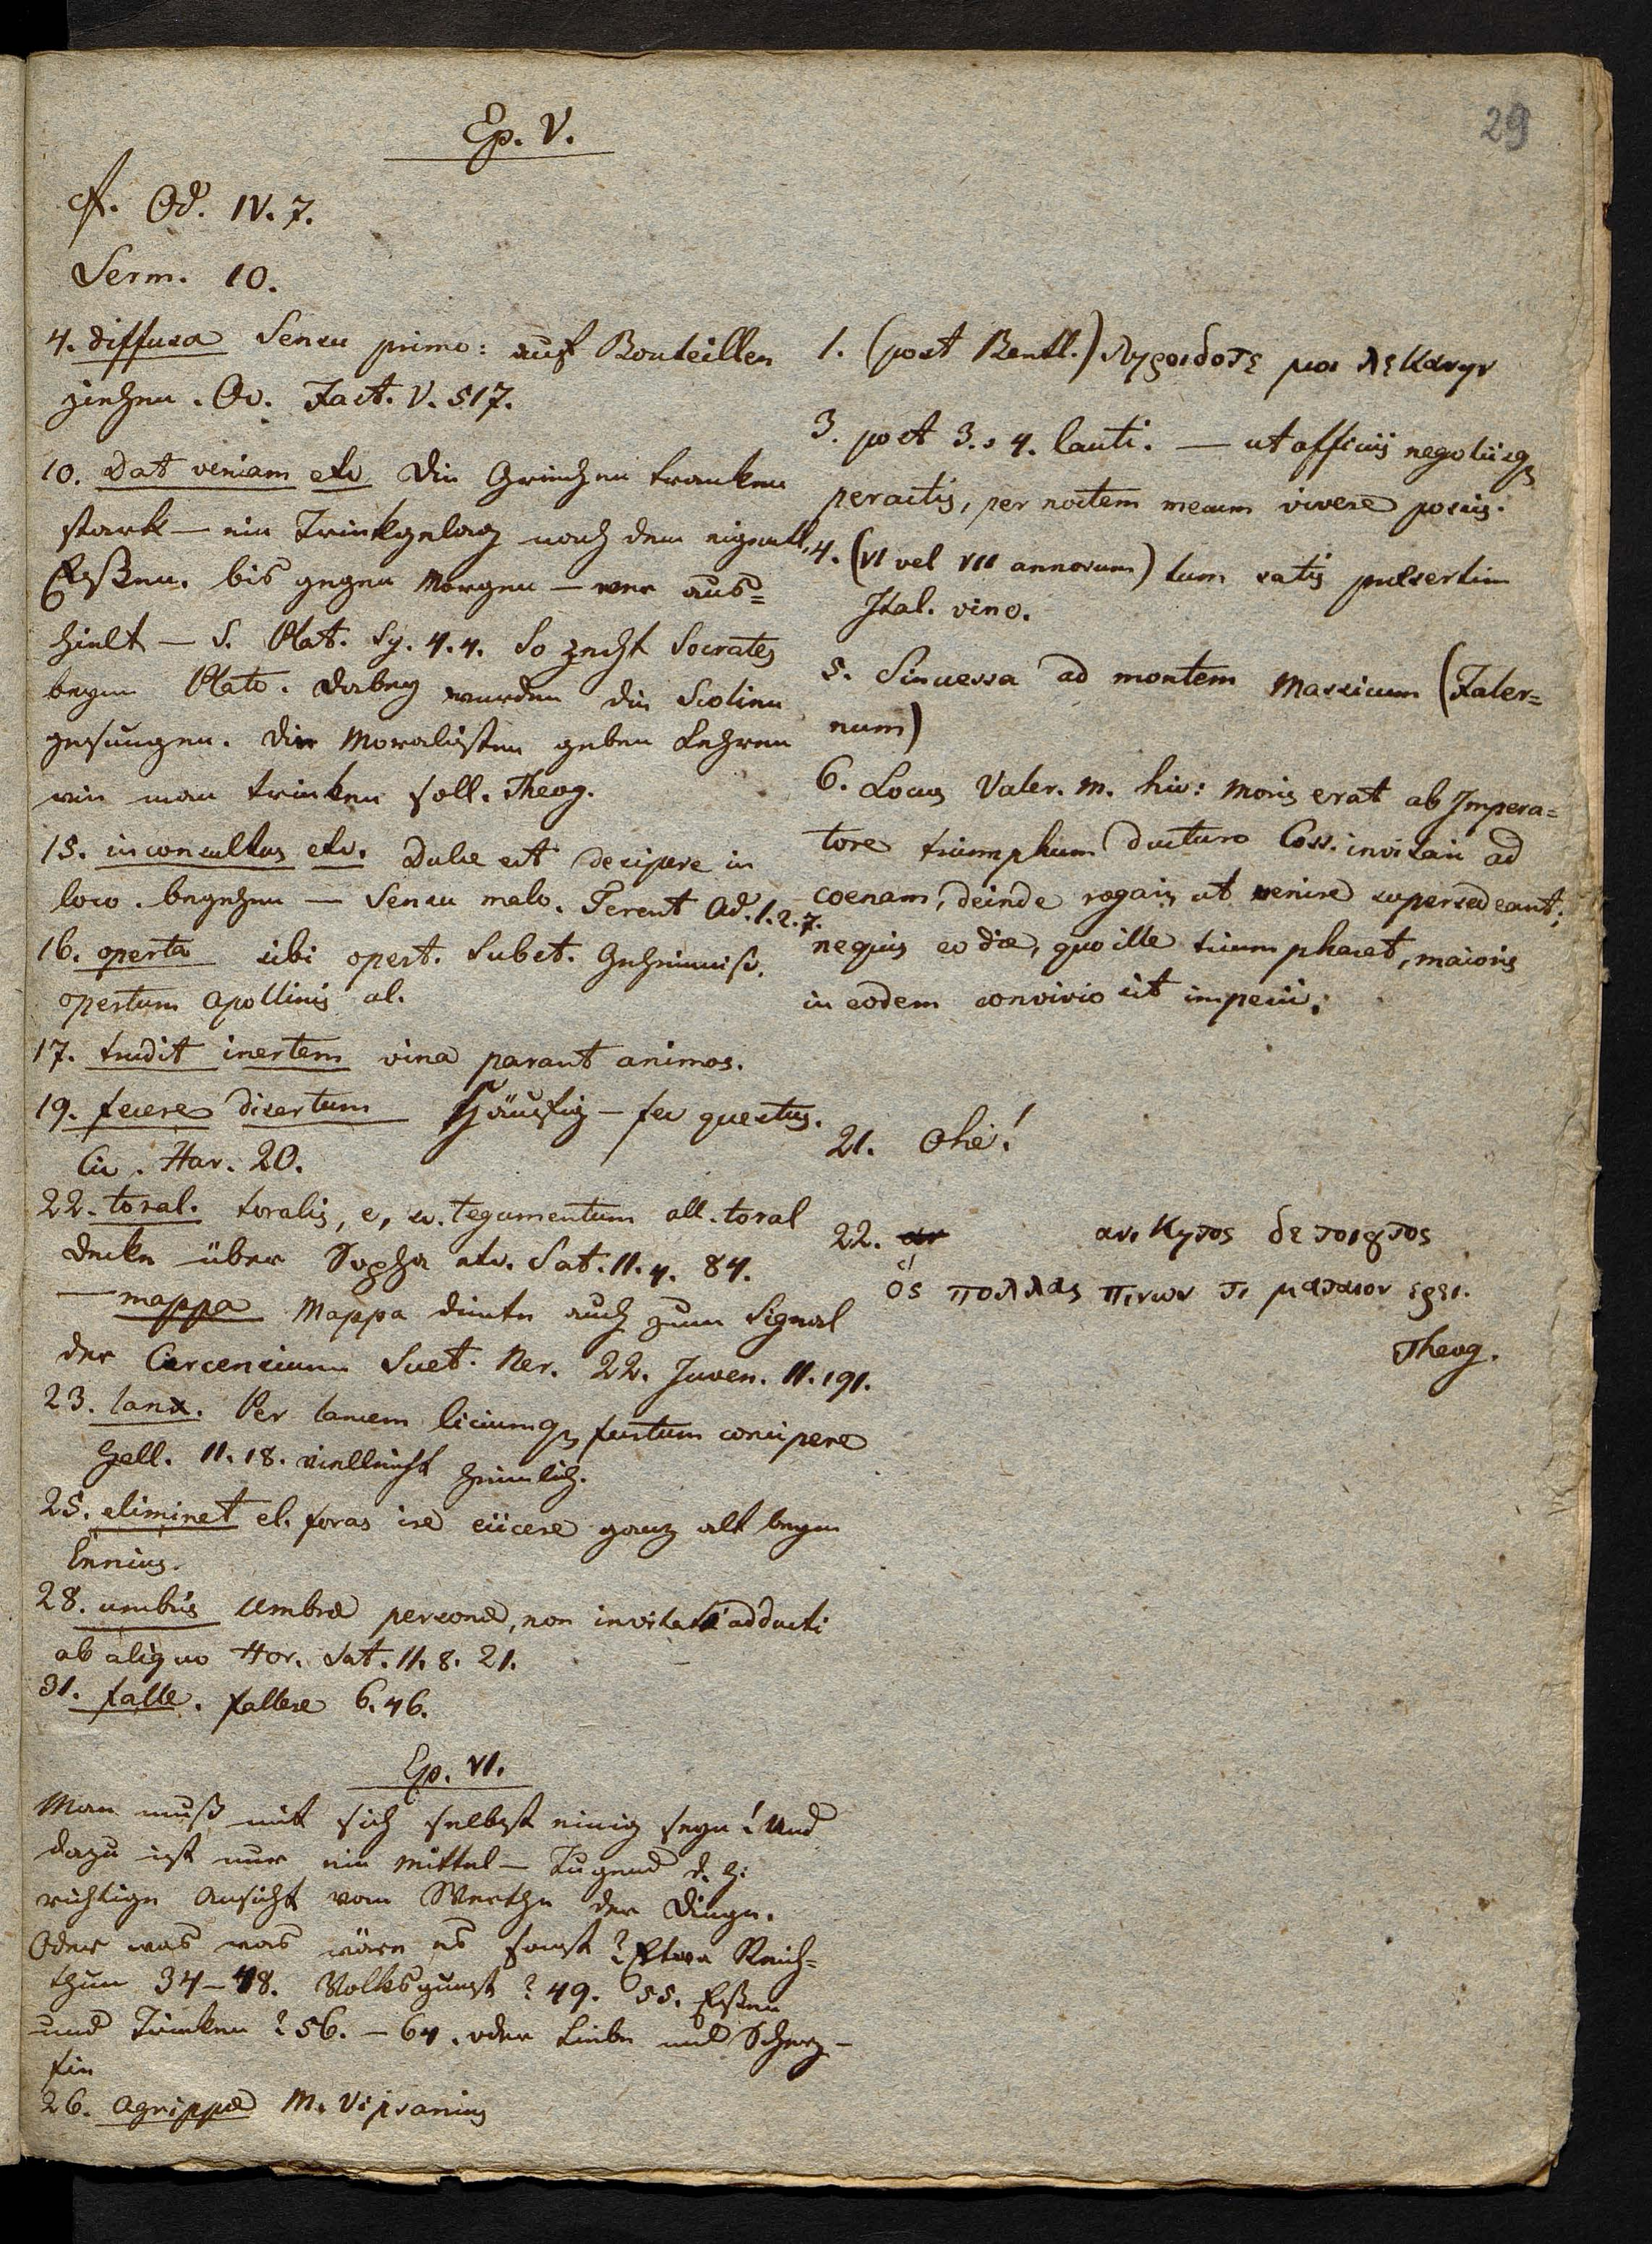 29
Ep. V.
cf. Od. IV. 7.
Serm. 10.
4. diffusa Sensu primo: auf Bouteillen
ziehen. Ov. Fast. V. 517.
10. Dat veniam etc Die Griechen tranken
stark — ein Trinkgelag nach dem eigentl.
Eßen. bis gegen Morgen — wer aus=
hielt — S. Plat. Sy. 4.4. So zecht Socrates
beym Plato. Dabey wurden die Scolien
gesungen. Die Moralisten geben Lehren
wie man trinken soll. Theog.
15. inconsultus etc. Dulce est desipere in
loco. begehen — Sensu malo. Terent Ad. 1.2.7.
16. operta sibi opert. Subst. Geheimniße.
opertum Apollinis al.
17. trudit inertem vina parant animos.
19. fecere disertum Häufig — fec questus.
Cic. Har. 20.
22. toral. toralis, e, sc. tegumentum all. toral
Decke über Sopha etc. Sat. II. 4. 84.
— mappa Mappa diente auch zum Signal
der Circensium Suet. Ner. 22. Juven. 11. 191.
23. lanx. Per lancem liciumq; furtum concipere
Gell. 11. 18. vielleicht heimlich.
25. eliminet el. foras ire eiicere ganz alt beym
Ennius.
28. umbris Umbrae personae, non invitati adducti
ab aliquo Hor. Sat. II. 8. 21.
31. falle. fallere 6. 46.
1. (post Bentl.) μοι λεκανην
3. post 3. s 4. lauti. — ut officiis negotiisq;
peractis, per noctem mecum vivere possis.
4. (VI vel VII annorum) tum satis pulsertim
Ital. vino.
5. Sinuessa ad montem Massicum (Faler=
num)
6. Locus Valer. M. hic: Moris erat ab Impera=
tore triumphum ducturo Coss. invitari ad
coenam, deinde rogari, ut venire supersedeant;
nequis eo die, quo ille triumpharet, maioris
in eodem convivio sit imperii.
21. Ohe!
22. ανικητος δε τοιουτος
ὁς πολλας πινων τι ματαιον ερει.
Theog.
Ep. VI.
Man muß mit sich selbst einig seyn! Und
dazu ist nur ein Mittel — Tugend d. h.
richtige Ansicht vom Werthe der Dinge.
Oder was was wäre es sonst? Etwa Reich=
thum 34—48. Volksgunst? 49. 55. Eßen
und Trinken? 56. — 64. oder Liebe und Scherz —
fin
26. Agrippae M. Vipsanius